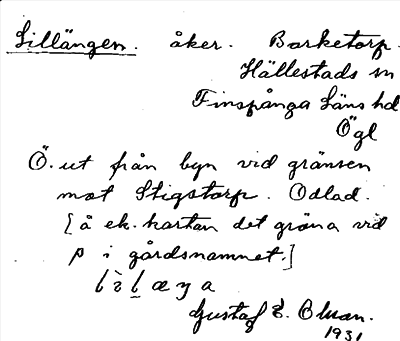 Lillängen. åker. Barketorp.
Hällestads sn
Finspånga Läns hd
Ögl
Ö. ut från byn vid gränsen
mot Stigstorp. Odlad.
[å ek. kartan det gröna vid
p i gårdsnamnet.]
Gustaf E. Olsson.
1931